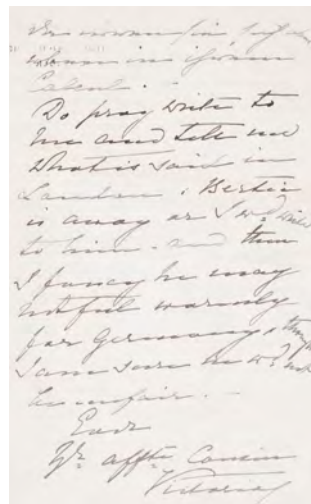 Do pray write to
me and tell me
What is said in
London. Bertie
is away or I wd. write
to him - and then
I fancy he may
not feel warmly
for Germany, though
I am sure he wd. not
be unfair. -
Ever
Yr. affte. Cousin
Victoria